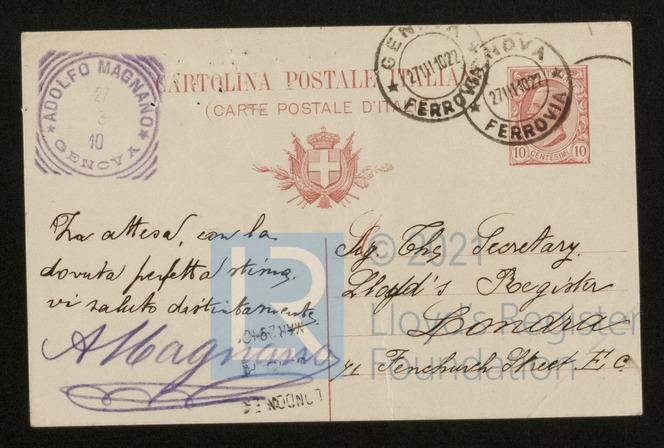 ADOLFO MAGNANO
27
3
10
GENOVA
CARTOLINA POSTALE ITALIANA
(CARTE POSTALE D'ITALIE)
GENOVA
FERROVIA
GENOVA
FERROVIA
10 CENTESIMI 10
In attesa, con la
dovuta perfetta stima.
vi saluto distintamente.
AMagnano
Sig. The Secretary.
Lloyd's Register
Londra
71 Fenchurch Street. E.C.
MAR 29 10
LONDON E.C
© 2021
Lloyd's Register
Foundation
LR